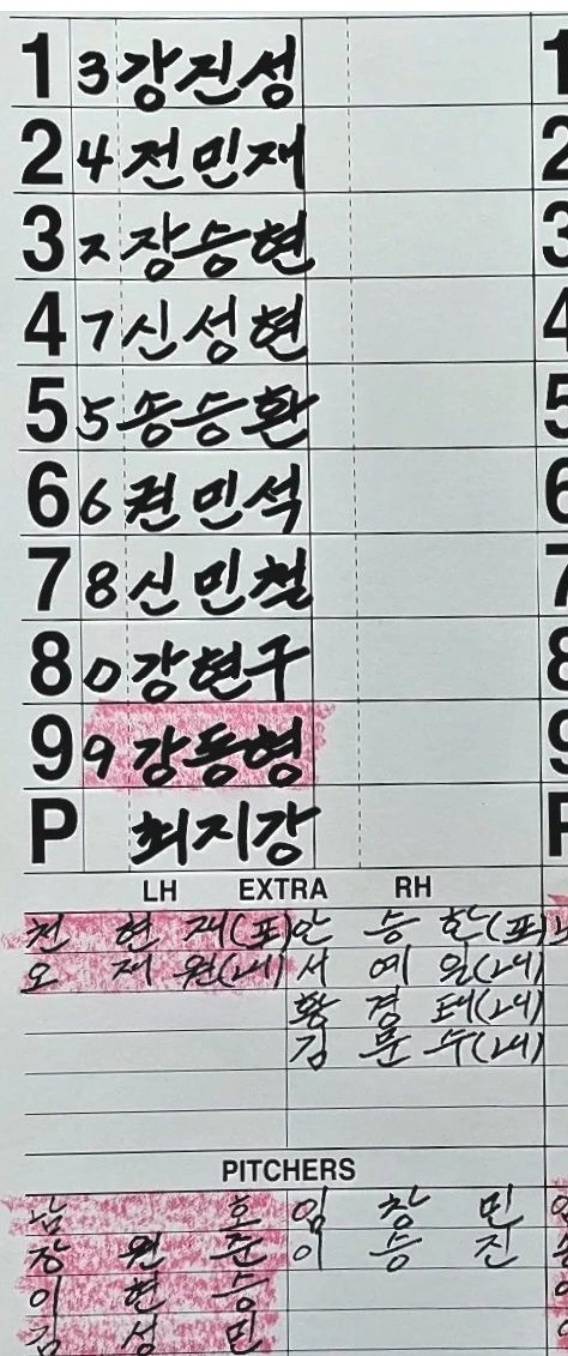 1 3 강진성 1
2 4 전민재 2
3 ㅈ 장승현 3
4 7 신성현 4
5 5 송승환 5
6 6 권민석 6
7 8 신민철 7
8 D 강현구 8
9 9 강동형 9
P 최지강 P
LH EXTRA RH
천 현 재(포) 안 승 한(포)
오 재 원(내) 서 예 일(내)
황 경 태(내)
김 문 수(내)
PITCHERS
남 호 임 창 민
장 원 준 이 승 진
이 현 승
김 성 민